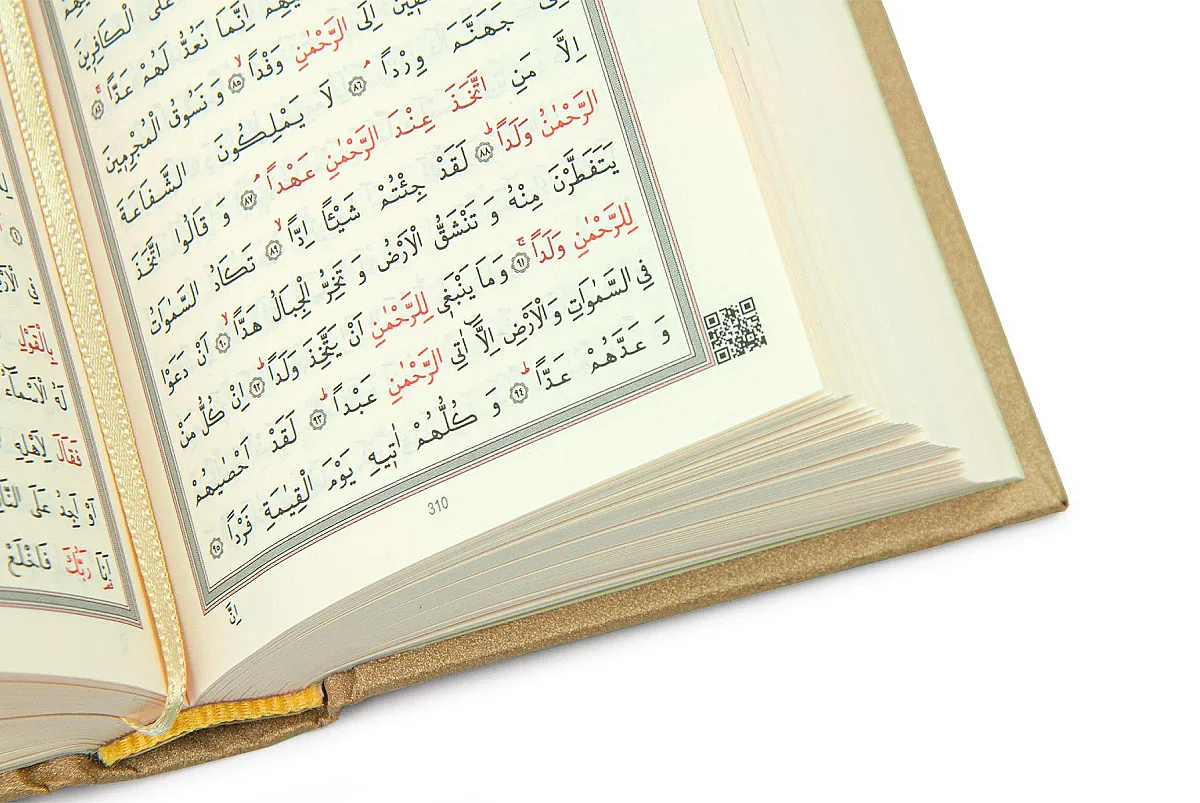 عَلَى الْكَافِرِينَ
اِنَّمَا نَعُدُّ لَهُمْ عَدًّاۚ ﴿٨٤﴾
اِلَى الرَّحْمٰنِ وَفْداًۙ ﴿٨٥﴾ وَنَسُوقُ الْمُجْرِمِينَ
جَهَنَّمَ وِرْداًۢ ﴿٨٦﴾ لَا يَمْلِكُونَ الشَّفَاعَةَ
اِلَّا مَنِ اتَّخَذَ عِنْدَ الرَّحْمٰنِ عَهْداًۢ ﴿٨٧﴾ وَقَالُوا اتَّخَذَ
الرَّحْمٰنُ وَلَداًۜ ﴿٨٨﴾ لَقَدْ جِئْتُمْ شَيْـٔاً اِدّاًۙ ﴿٨٩﴾ تَكَادُ السَّمٰوَاتُ
يَتَفَطَّرْنَ مِنْهُ وَتَنْشَقُّ الْاَرْضُ وَتَخِرُّ الْجِبَالُ هَدّاًۙ ﴿٩٠﴾ اَنْ دَعَوْا
لِلرَّحْمٰنِ وَلَداًۚ ﴿٩١﴾ وَمَا يَنْبَغ۪ي لِلرَّحْمٰنِ اَنْ يَتَّخِذَ وَلَداًۜ ﴿٩٢﴾ اِنْ كُلُّ مَنْ
فِي السَّمٰوَاتِ وَالْاَرْضِ اِلَّٓا اٰتِي الرَّحْمٰنِ عَبْداًۜ ﴿٩٣﴾ لَقَدْ اَحْصٰيهُمْ
وَعَدَّهُمْ عَدّاًۜ ﴿٩٤﴾ وَكُلُّهُمْ اٰت۪يهِ يَوْمَ الْقِيٰمَةِ فَرْداً ﴿٩٥﴾
310
اِنَّ
بِالْقَوْلِ
لَهُ الْاَسْمَٓاءُ
فَقَالَ لِاَهْلِهِ
اَوْ اَجِدُ عَلَى
اَنَا۬ رَبُّكَ فَاخْلَعْ